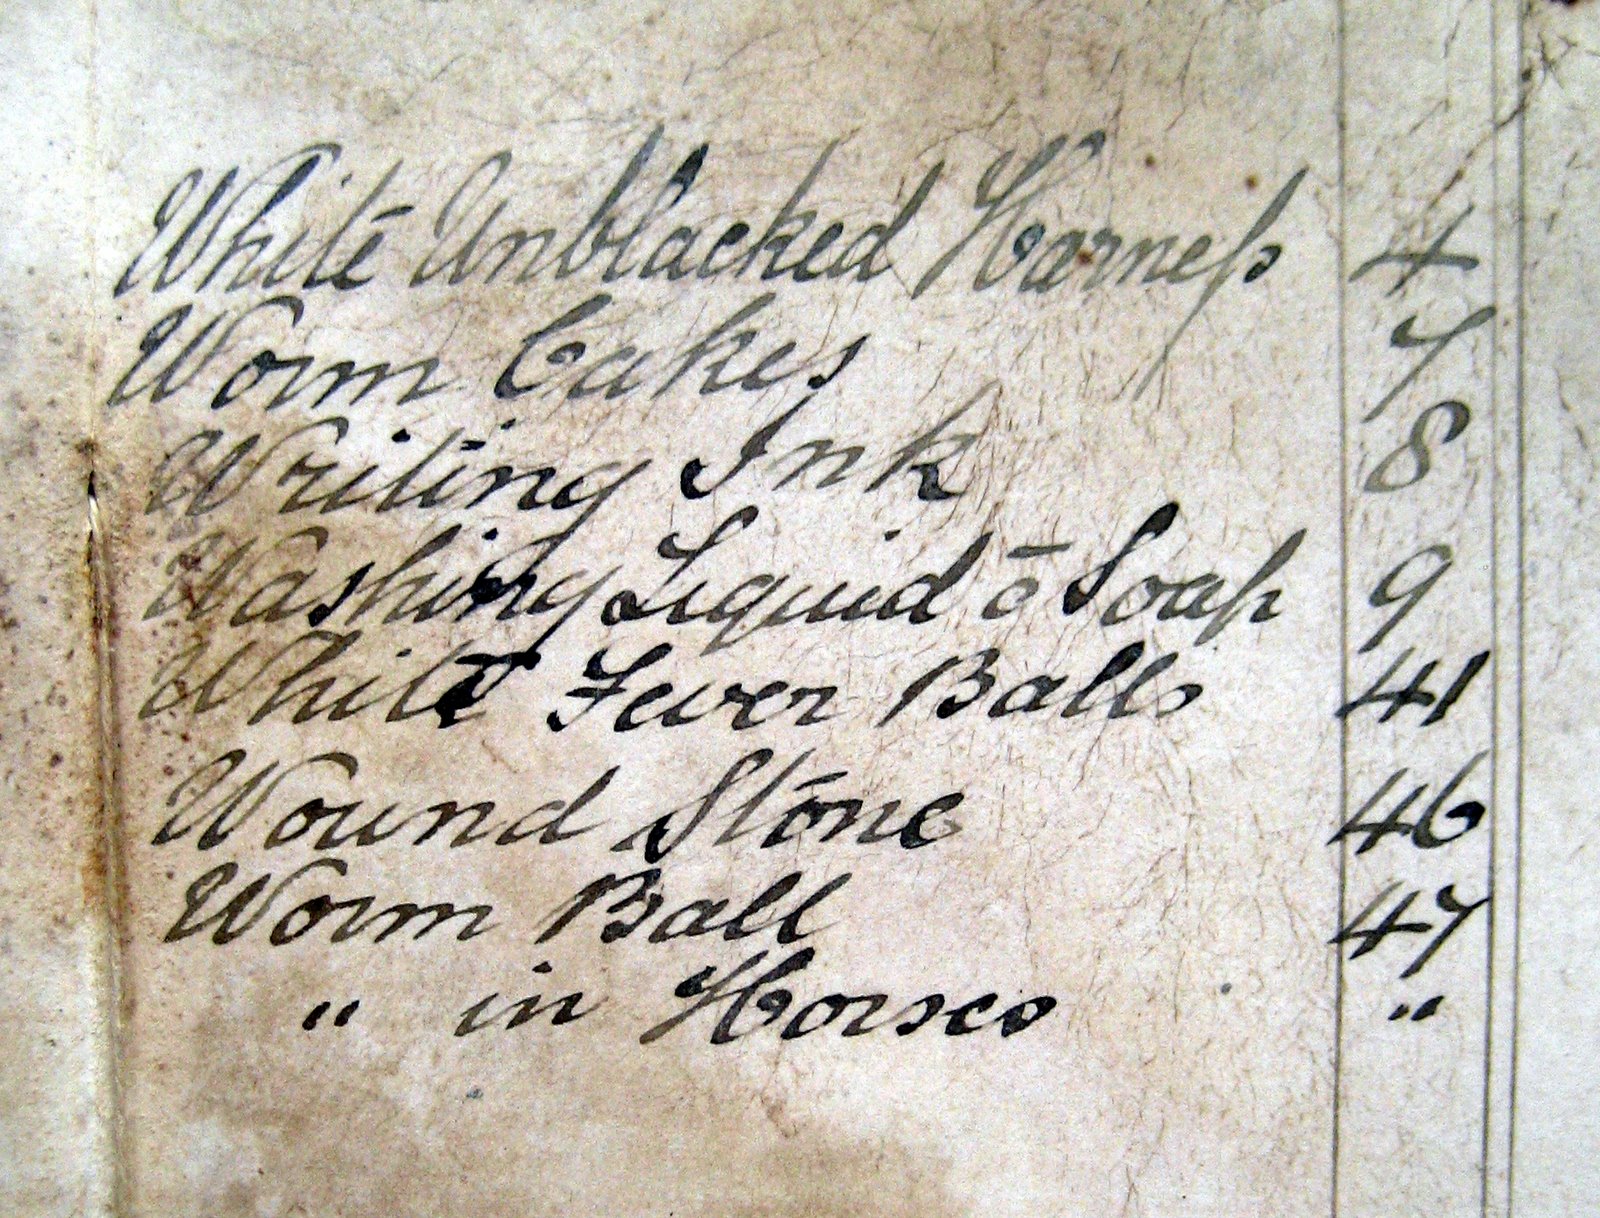 White Unblacked Harneſs 4
Worm Cakes 7
Writing Ink 8
Washing Liquid ō Soap 9
White Fever Balls 41
Wound Stone 46
Worm Ball 47
" in Horses "